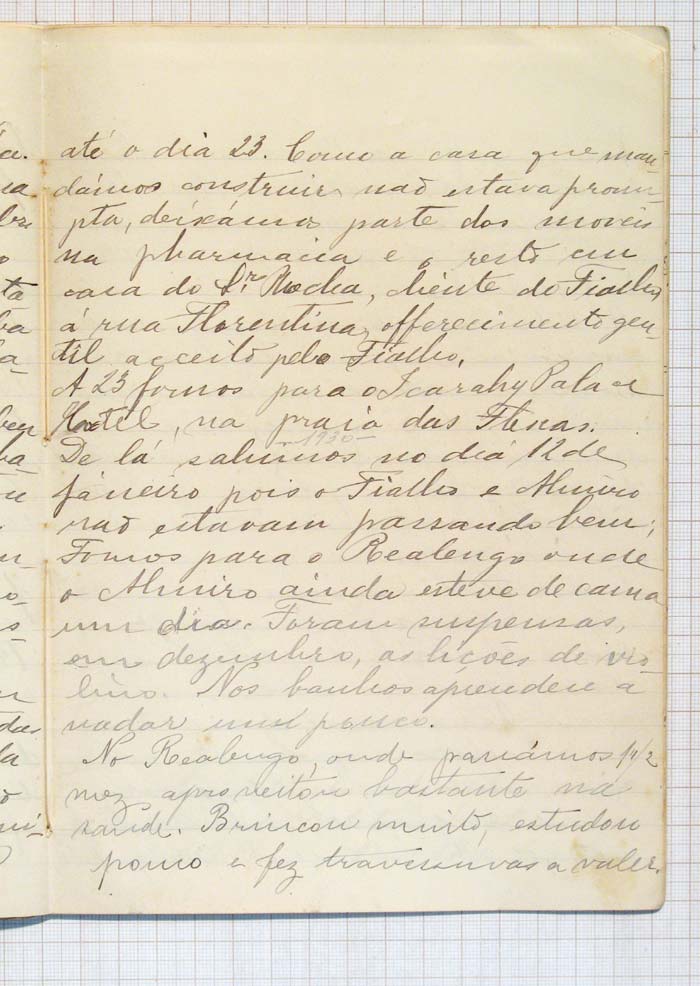 até o dia 23. Como a casa que man-
dámos construir não estava prom-
pta, deixámos parte dos moveis
na pharmacia e o resto em
casa do Sr. Rocha, cliente do Fialho,
á rua Florentina, offerecimento gen-
til acceito pelo Fialho.
A 23 fomos para o Icarahy Palace
Hotel, na praia das Flexas.
1930
De lá sahimos no dia 12 de
janeiro pois o Fialho e Almiro
não estavam passando bem;
Fomos para o Realengo onde
o Almiro ainda esteve de cama
um dia. Foram suspensas,
em dezembro, as lições de vio-
lino. Nos banhos aprendeu a
nadar um pouco.
No Realengo, onde passámos 1 1/2
mez, aproveitou bastante na
saude. Brincou muito, estudou
pouco e fez travessuras a valer.